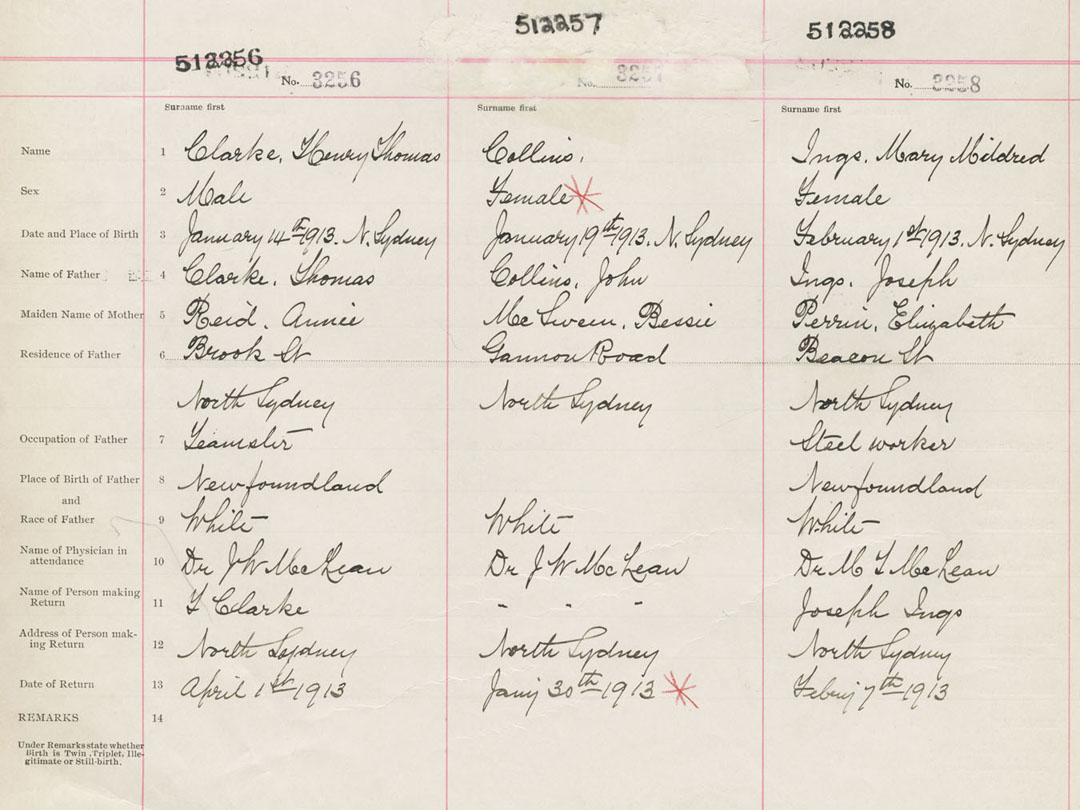 512256 512257 512258
No. 3256 No. 325 No. 3258
Surname first Surname first Surname first
Name 1 Clarke, Henry Thomas Collins, Ings, Mary Mildred
Sex 2 Male Female Female
Date and Place of Birth 3 January 14th 1913. N. Sydney January 19th 1913. N. Sydney February 1st 1913. N. Sydney
Name of Father 4 Clarke, Thomas Collins, John Ings, Joseph
Maiden Name of Mother 5 Reid, Annie Mc Sween, Bessie Perrin, Elizabeth
Residence of Father 6 Brook St Gannon Road Beacon St
North Sydney North Sydney North Sydney
Occupation of Father 7 Teamster Steel worker
Place of Birth of Father 8 Newfoundland Newfoundland
and
Race of Father 9 White White White
Name of Physician in
attendance 10 Dr J W McLean Dr J W McLean Dr M T McLean
Name of Person making
Return 11 T Clarke " " " Joseph Ings
Address of Person mak-
ing Return 12 North Sydney North Sydney North Sydney
Date of Return 13 April 1st 1913 Jany 30th 1913 Febuy 7th 1913
REMARKS 14
Under Remarks state whether
Birth is Twin, Triplet, Ille-
gitimate or Still-birth.